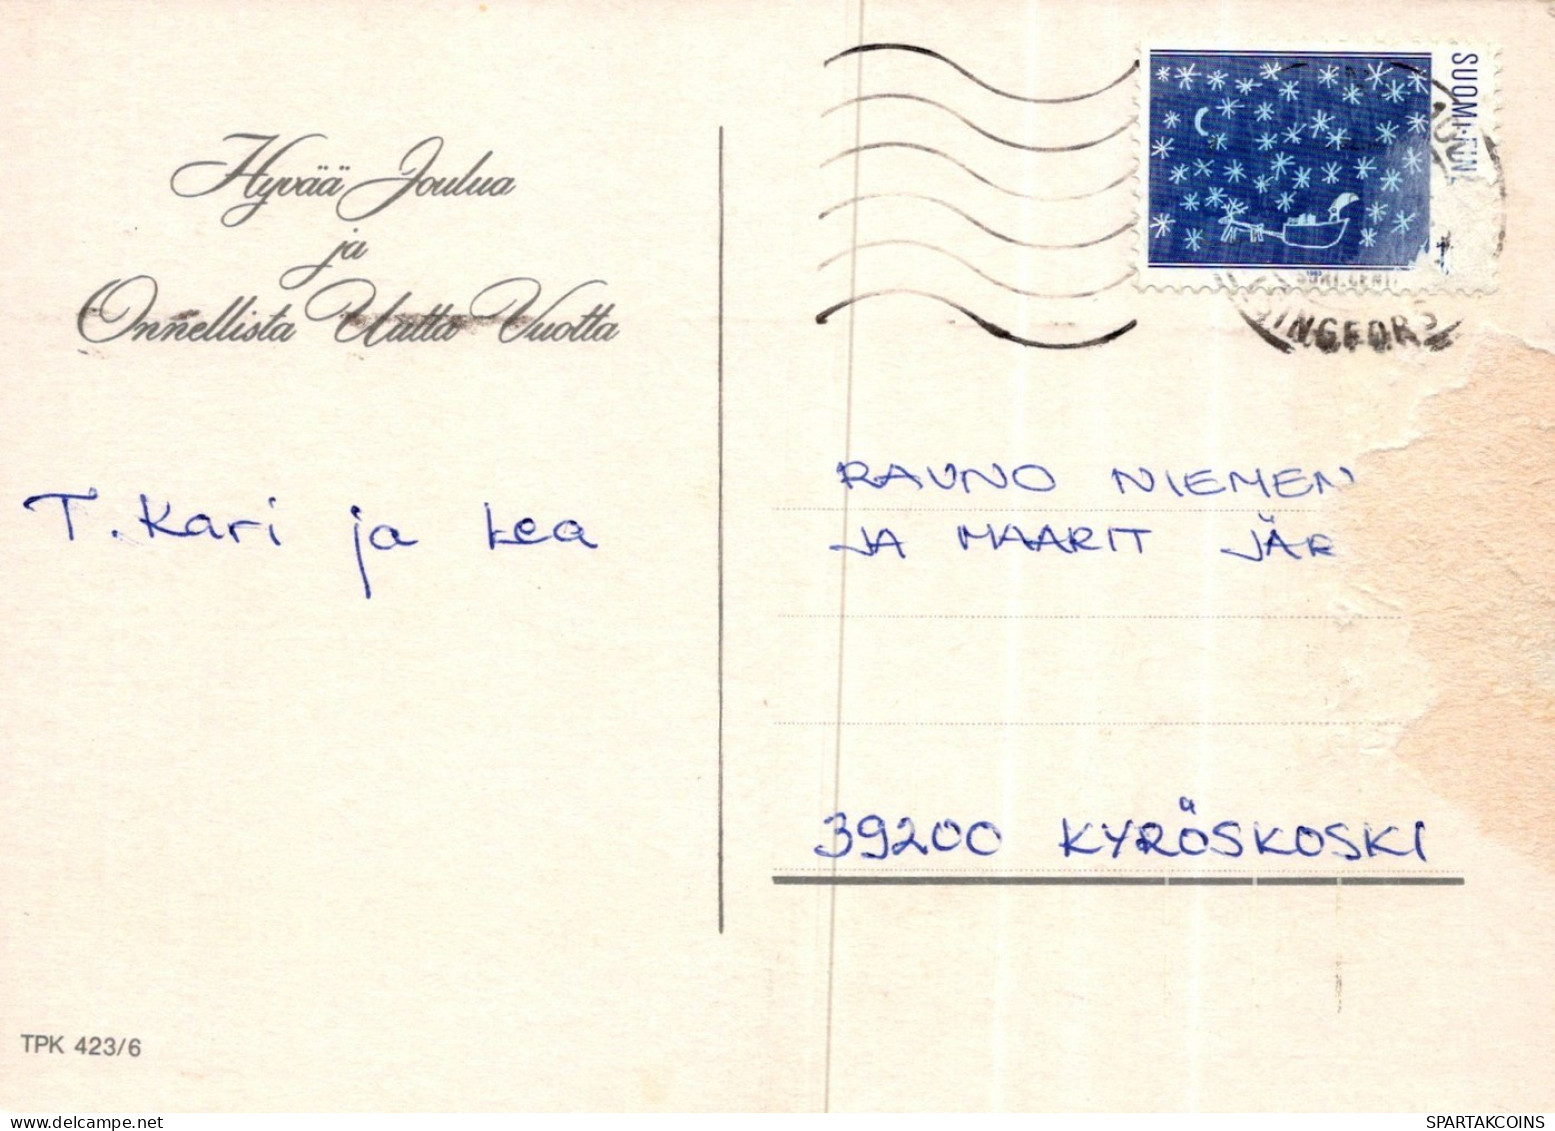 Hyvää Joulua
ja
Onnellista Uutta Vuotta
T. Kari ja Lea
SUOMI-FINL
INGFORS
RAUNO NIEMEN
JA MAARIT JÄR
39200 KYRÖSKOSKI
TPK 423/6
hippostcard.com
SPARTAKCOINS